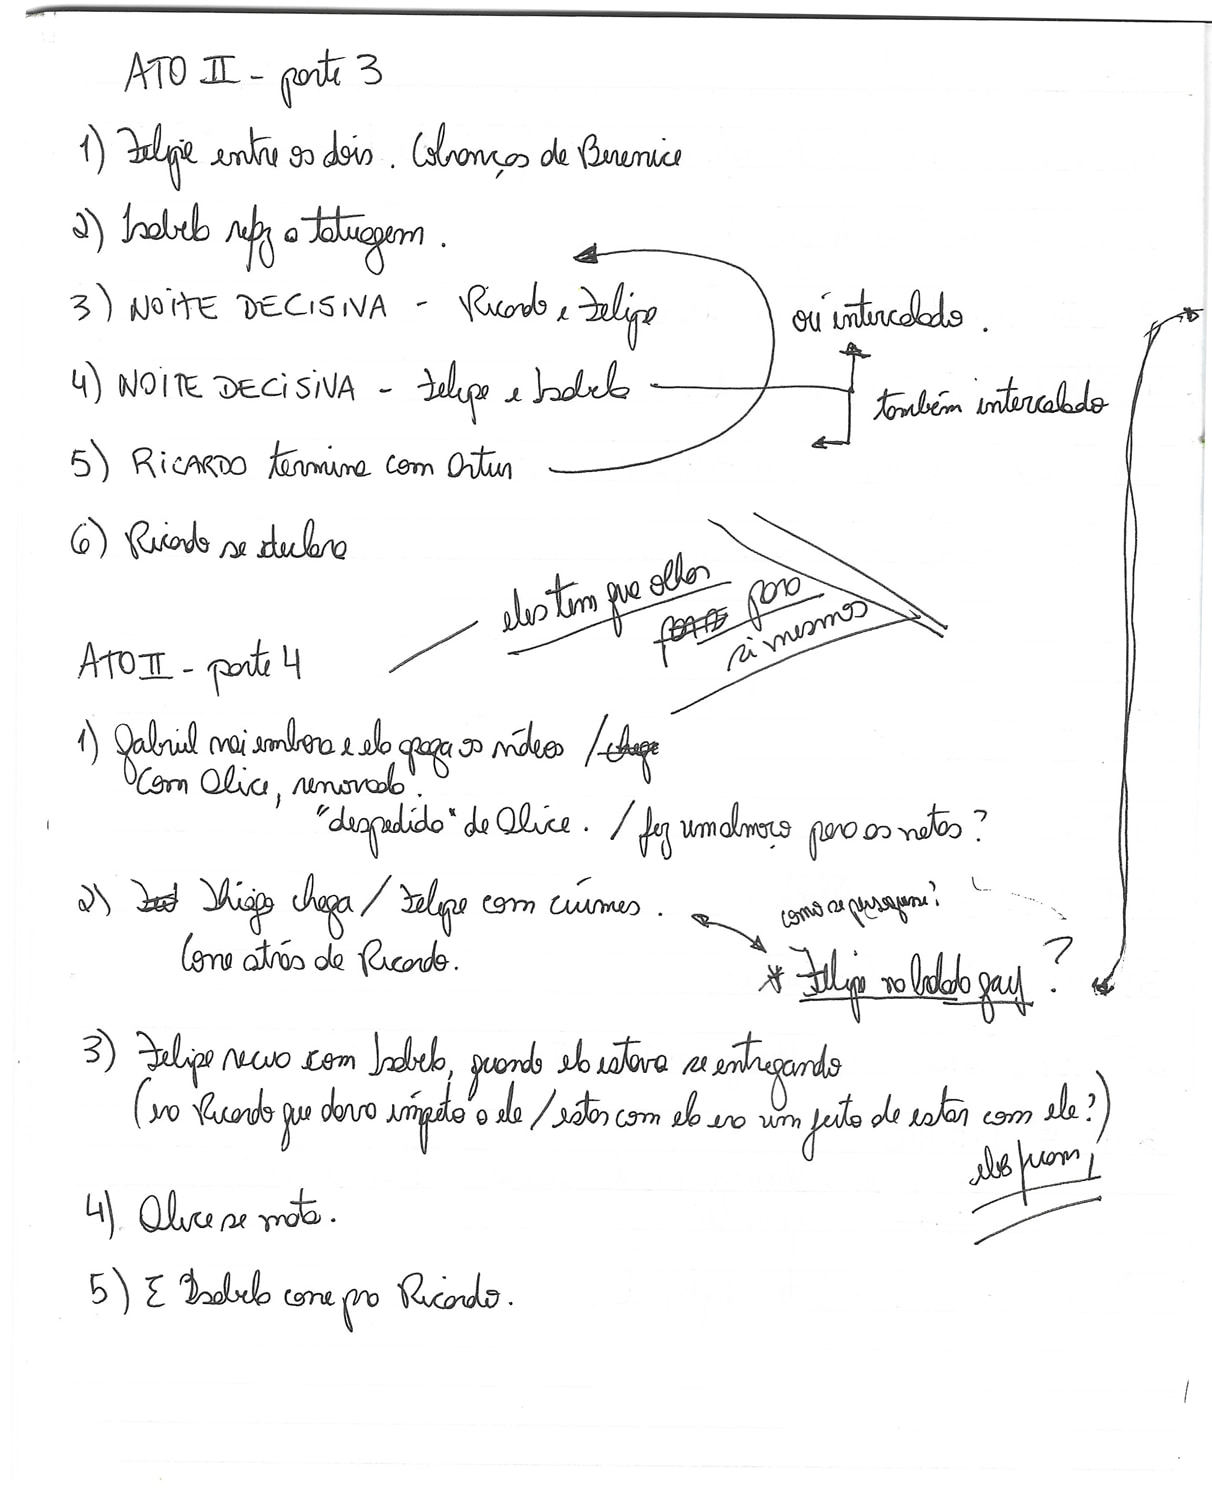 ATO II - parte 3
1) Felipe entre os dois. Cobranças de Berenice
2) Isabela refaz a tatuagem.
3) NOITE DECISIVA - Ricardo e Felipe
ou intercalado.
4) NOITE DECISIVA - Felipe e Isabela
também intercalado
5) RICARDO termina com Artur
6) Ricardo se declara
eles tem que olhar
para
si mesmos
ATO II - parte 4
1) Gabriel vai embora e ela apaga os vídeos / chega
com Alice, renovada.
"despedida" de Alice. / faz um almoço para os netos?
2) Thiago chega / Felipe com ciúmes.
como se perseguisse?
Corre atrás de Ricardo.
* Felipe na balada gay ?
3) Felipe recua com Isabela, quando ela estava se entregando
(era Ricardo que dava ímpeto a ele / estar com ela era um jeito de estar com ele?)
4) Alice se mata.
5) E Isabela corre pro Ricardo.